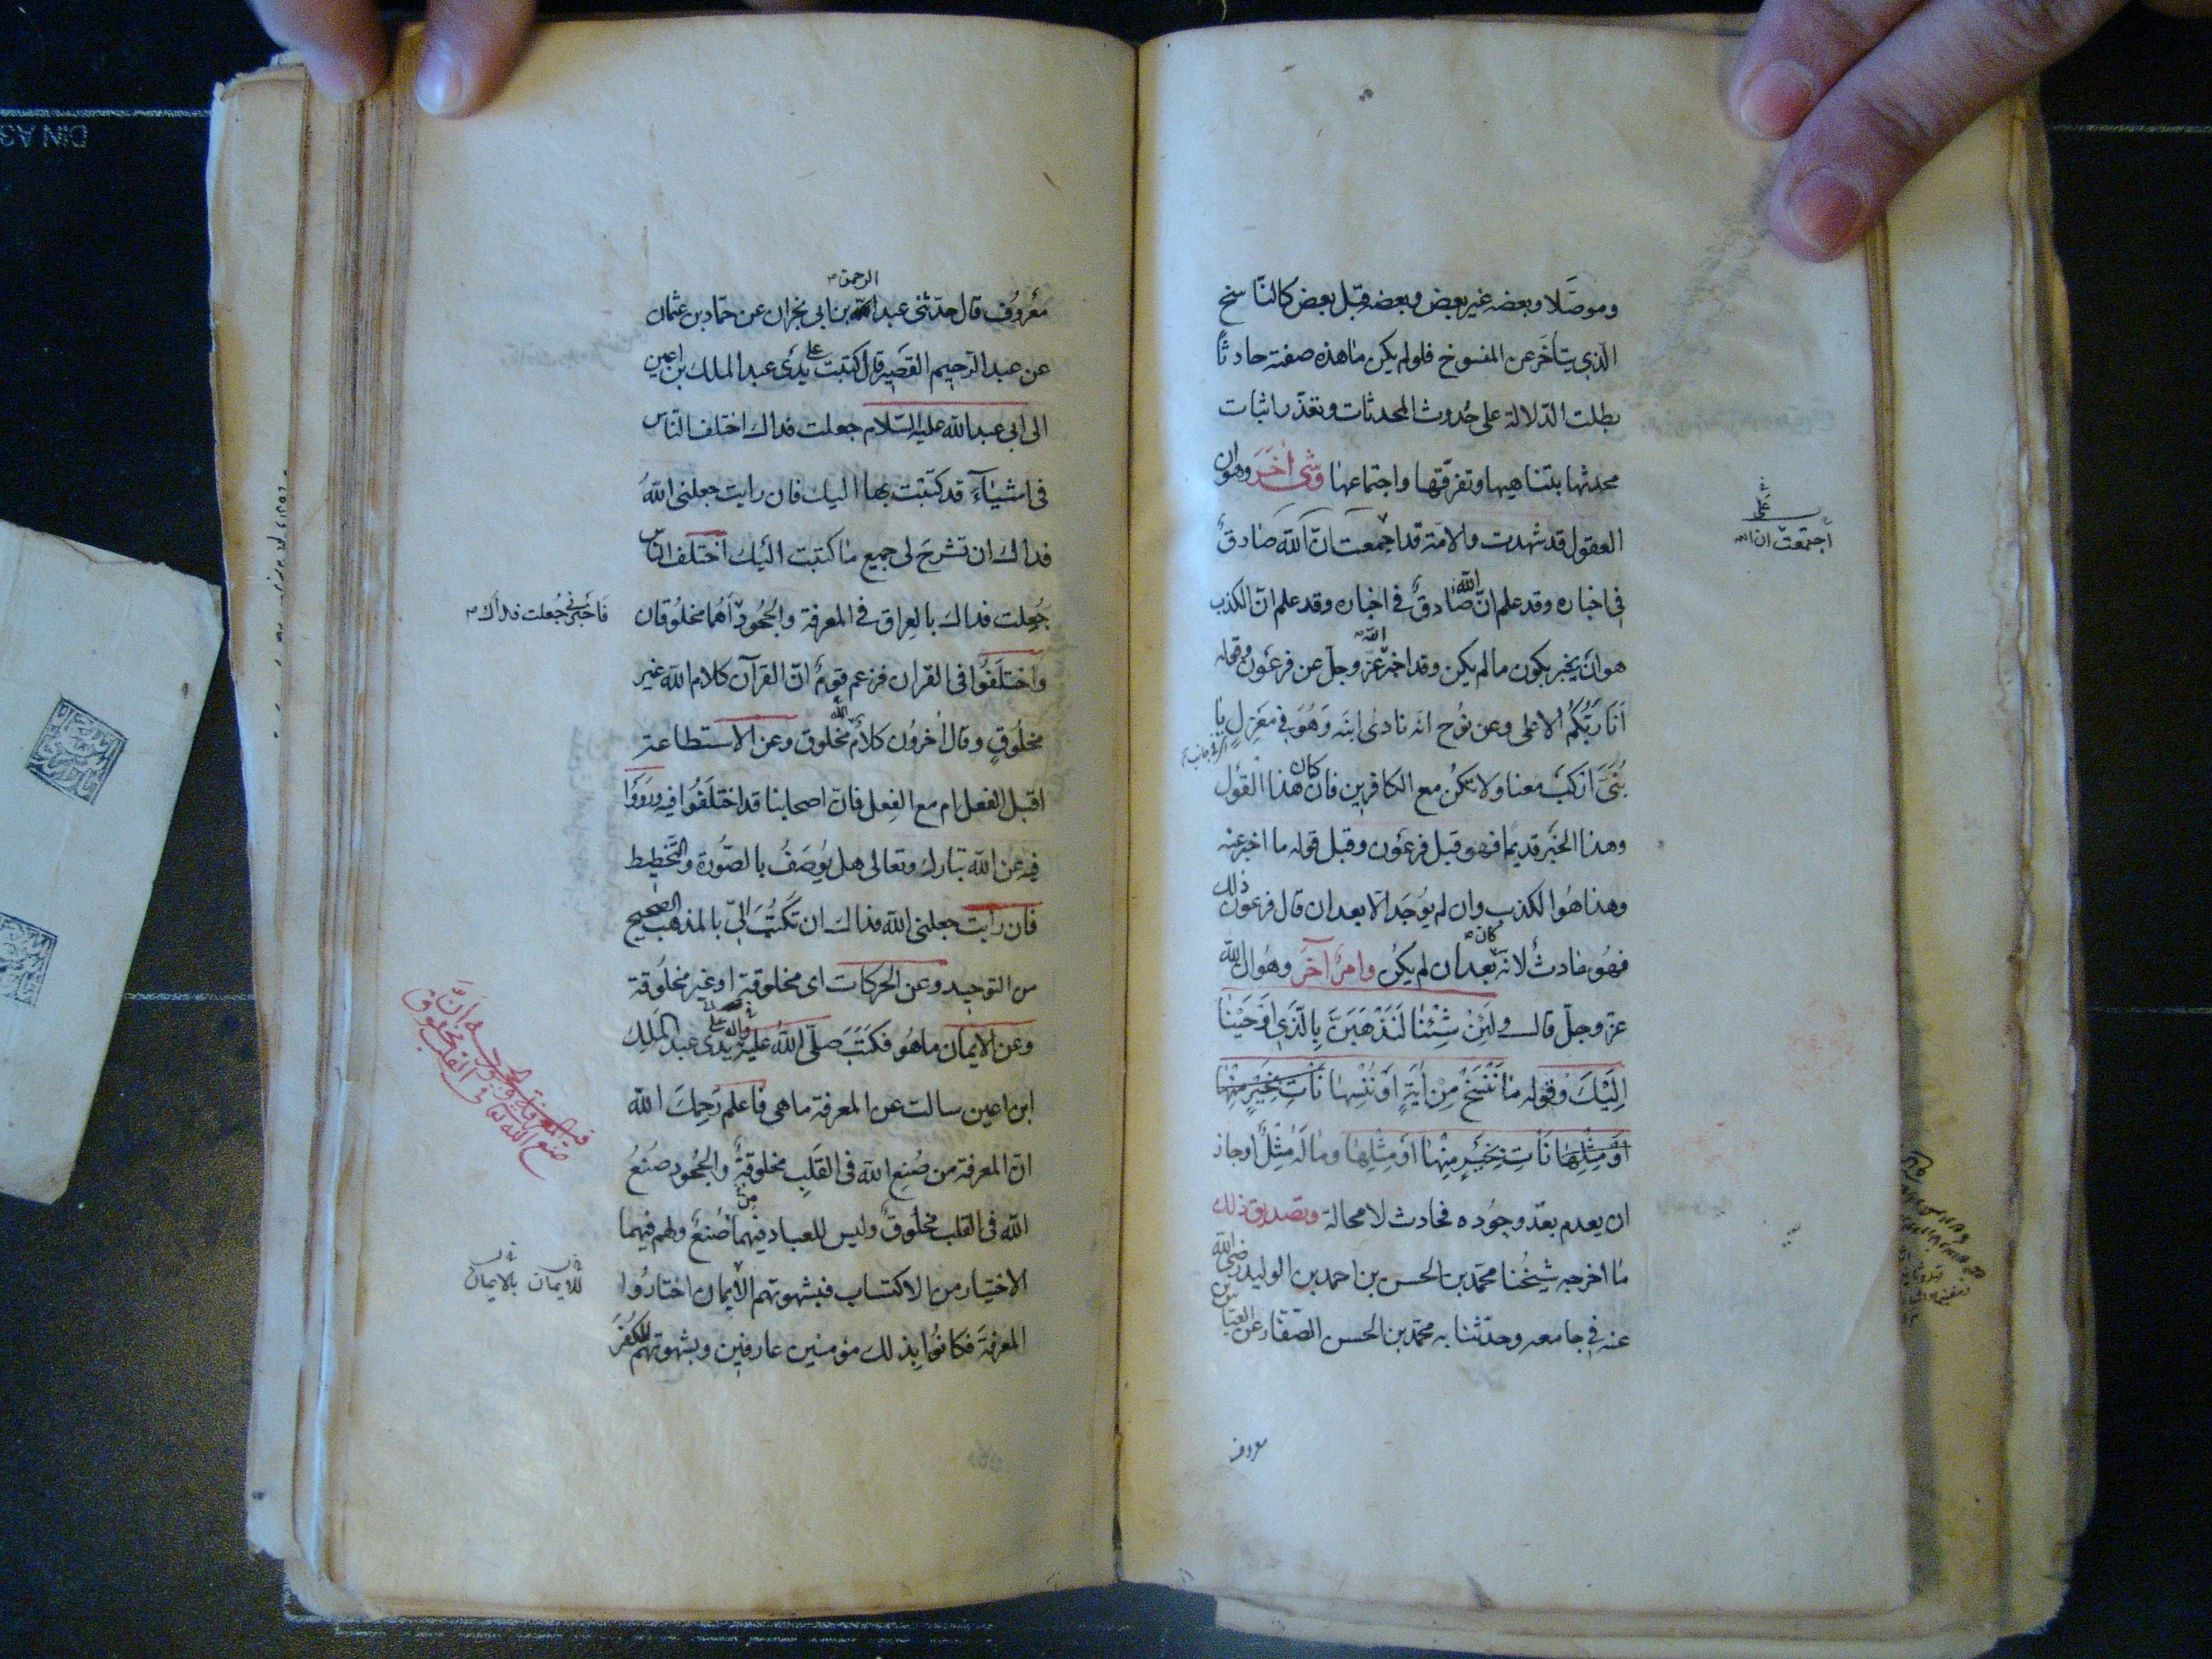 وموصَلا وبعضه غير بعض وبعضه قبل بعض كالناسخ
الذي يتأخر عن المنسوخ فلو لم يكن ما هذه صفته حادثًا
بطلت الدّلالة على حُدوث المحدثات وتعذّر اثبات
محدثها بتناهيها وتفرّقها واجتماعها وشىء آخَرَ وهو ان
العقول قد شهدت والامّة قد اجمعت انّ اللّه صادقٌ
على
اجتمعت ان الله
فى اخباره وقد علم انّ اللّه صادقٌ فى اخباره وقد علم انّ الكذب
هو ان يخبر بكون ما لم يكن وقد اخبر اللّه عزّ وجلّ عن فرعون وقوله
اَنَا رَبُّكُمُ الاعلى وعن نوُح انّه نادى ابنَه وَهُوَ فى مَعْزِلٍ يا
بُنَىَّ ارْكَبْ معنا ولا تكنْ مع الكافرين فان كان هذا القَول
وهذا الخَبر قديمًا فهو قبل فرعَون وقبل قوله ما اخبر عنه
وهذا هُوا الكذب وان لم يُوجَد الّا بعد ان قال فرعون ذلك
فهُو حادثٌ لانّه كان بعد ان لم يكنْ وامرٌ آخَر وهُو ال اللّه
عزّ وجلّ قال ولَئِنْ شِئْنا لَنَذْهَبَنَّ بِالَّذى اَوْحَيْنا
اِلَيْكَ وقوله ما نَنْسَخْ مِنْ آيَةٍ اَوْ نُنْسِها نَأتِ بِخَيْرٍ مِنْها
اَوْ مِثْلِها نَأْتِ بِخَيْرٍ مِنْها اَوْ مِثْلِها وما لَه مِثْلٌ او جاز
ان يعدم بعد وجُوده فحادث لا محالة وتصديق ذلك
ما اخرجه شيخُنا محمّد بن الحسن بن احمد بن الوليد رضى اللّه
عنه فى جامعه وحدّثنا به محمّد بن الحسن الصفّار عن العبّاس بن
معروف
الرحمن
معْروُف قال حدّثنى عبد اللّه بن ابى نجران عن حمّاد بن عثمان
عن عبد الرّحيم القَصير قال كتبت على يدَى عبد الملك بن اعين
الى ابى عبد اللّه عليه السّلام جعلت فداك اختلف النّاس
فى اشياءَ قد كتبت بها اليك فان رايت جعلنى اللّهُ
فداك ان تشرحَ لى جميع ما كتبت اليك اختلف الناس
جُعِلت فداك بالعراق فى المعرفة والجُحُود اَهُما مخلُوقان
فَأخبرنى جُعلت فداك
واختلَفُوا فى القران فزعم قومٌ انّ القرآن كلام اللّه غير
مخلُوقٍ وقال اخروُن كلامُ اللّه مخلوق وعن الاستطاعة
اقبل الفعل ام مع الفِعل فانّ اصحابنا قد اختلَفُوا فيه ورَوَوْا
فيه عن اللّه تبارك وتعالى هل يُوصَفُ بالصّورة والتّخطيط
فان رايت جعلنى اللّه فداك ان تَكْتُبَ الىّ بالمذهب الصحيح
من التوحيد وعن الحركات اى مخلوقة او غير مخلُوقة
وعن الايمان ما هُو فكَتَبَ صلّى اللّهُ عليه وآله على يدى عبد المَلِك
ابن اعين سالت عن المعرفة ما هى فاعلم رَحِمَك اللّه
انّ المعرفة من صُنع اللّه فى القَلبِ مخلوقةٌ والجُحُود صنعُ
اللّه فى القلب مخلُوقٌ وليس للعباد فيهما من صُنعٌ ولهم فيهما
الاختيار من الاكتساب فبشهوتهم الأيمان اختارُوا
للايمان بالايمان
المعرفَةَ فكانُوا بذلك مؤمنين عارفين وبشهوتهم للكُفرَ